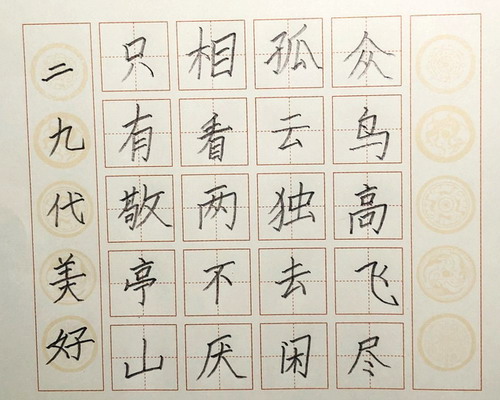 众鸟高飞尽
孤云独去闲
相看两不厌
只有敬亭山
二九代美好